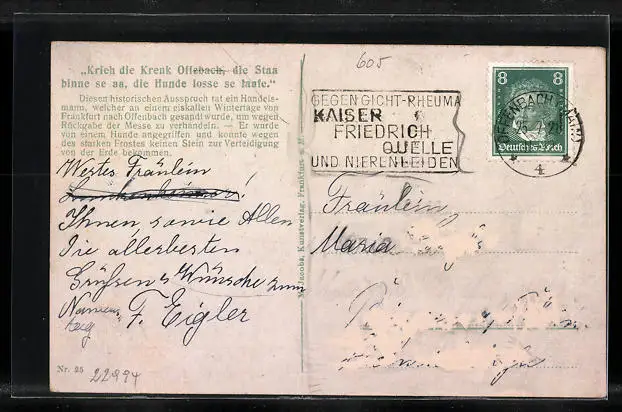 605
„Krieh die Krenk Offebach, die Staa
binne se aa, die Hunde losse se laafe.“
Diesen historischen Ausspruch tat ein Handels-
mann, welcher an einem eiskalten Wintertage von
Frankfurt nach Offenbach gesandt wurde, um wegen
Rückgabe der Messe zu verhandeln. — Er wurde
von einem Hunde angegriffen und konnte wegen
des starken Frostes keinen Stein zur Verteidigung
von der Erde bekommen.
Wertes Fräulein
Ihnen, sowie Allen
die allerbesten
Grüßen & Wünsche zum
Namens
tag F. Eigler
Nr. 25 22994
M. Jacobs, Kunstverlag, Frankfurt a. M.
GEGEN GICHT-RHEUMA
KAISER
FRIEDRICH
QUELLE
UND NIERENLEIDEN
8 8
Deutsches Reich
OFFENBACH (MAIN)
4
Fräulein
Maria